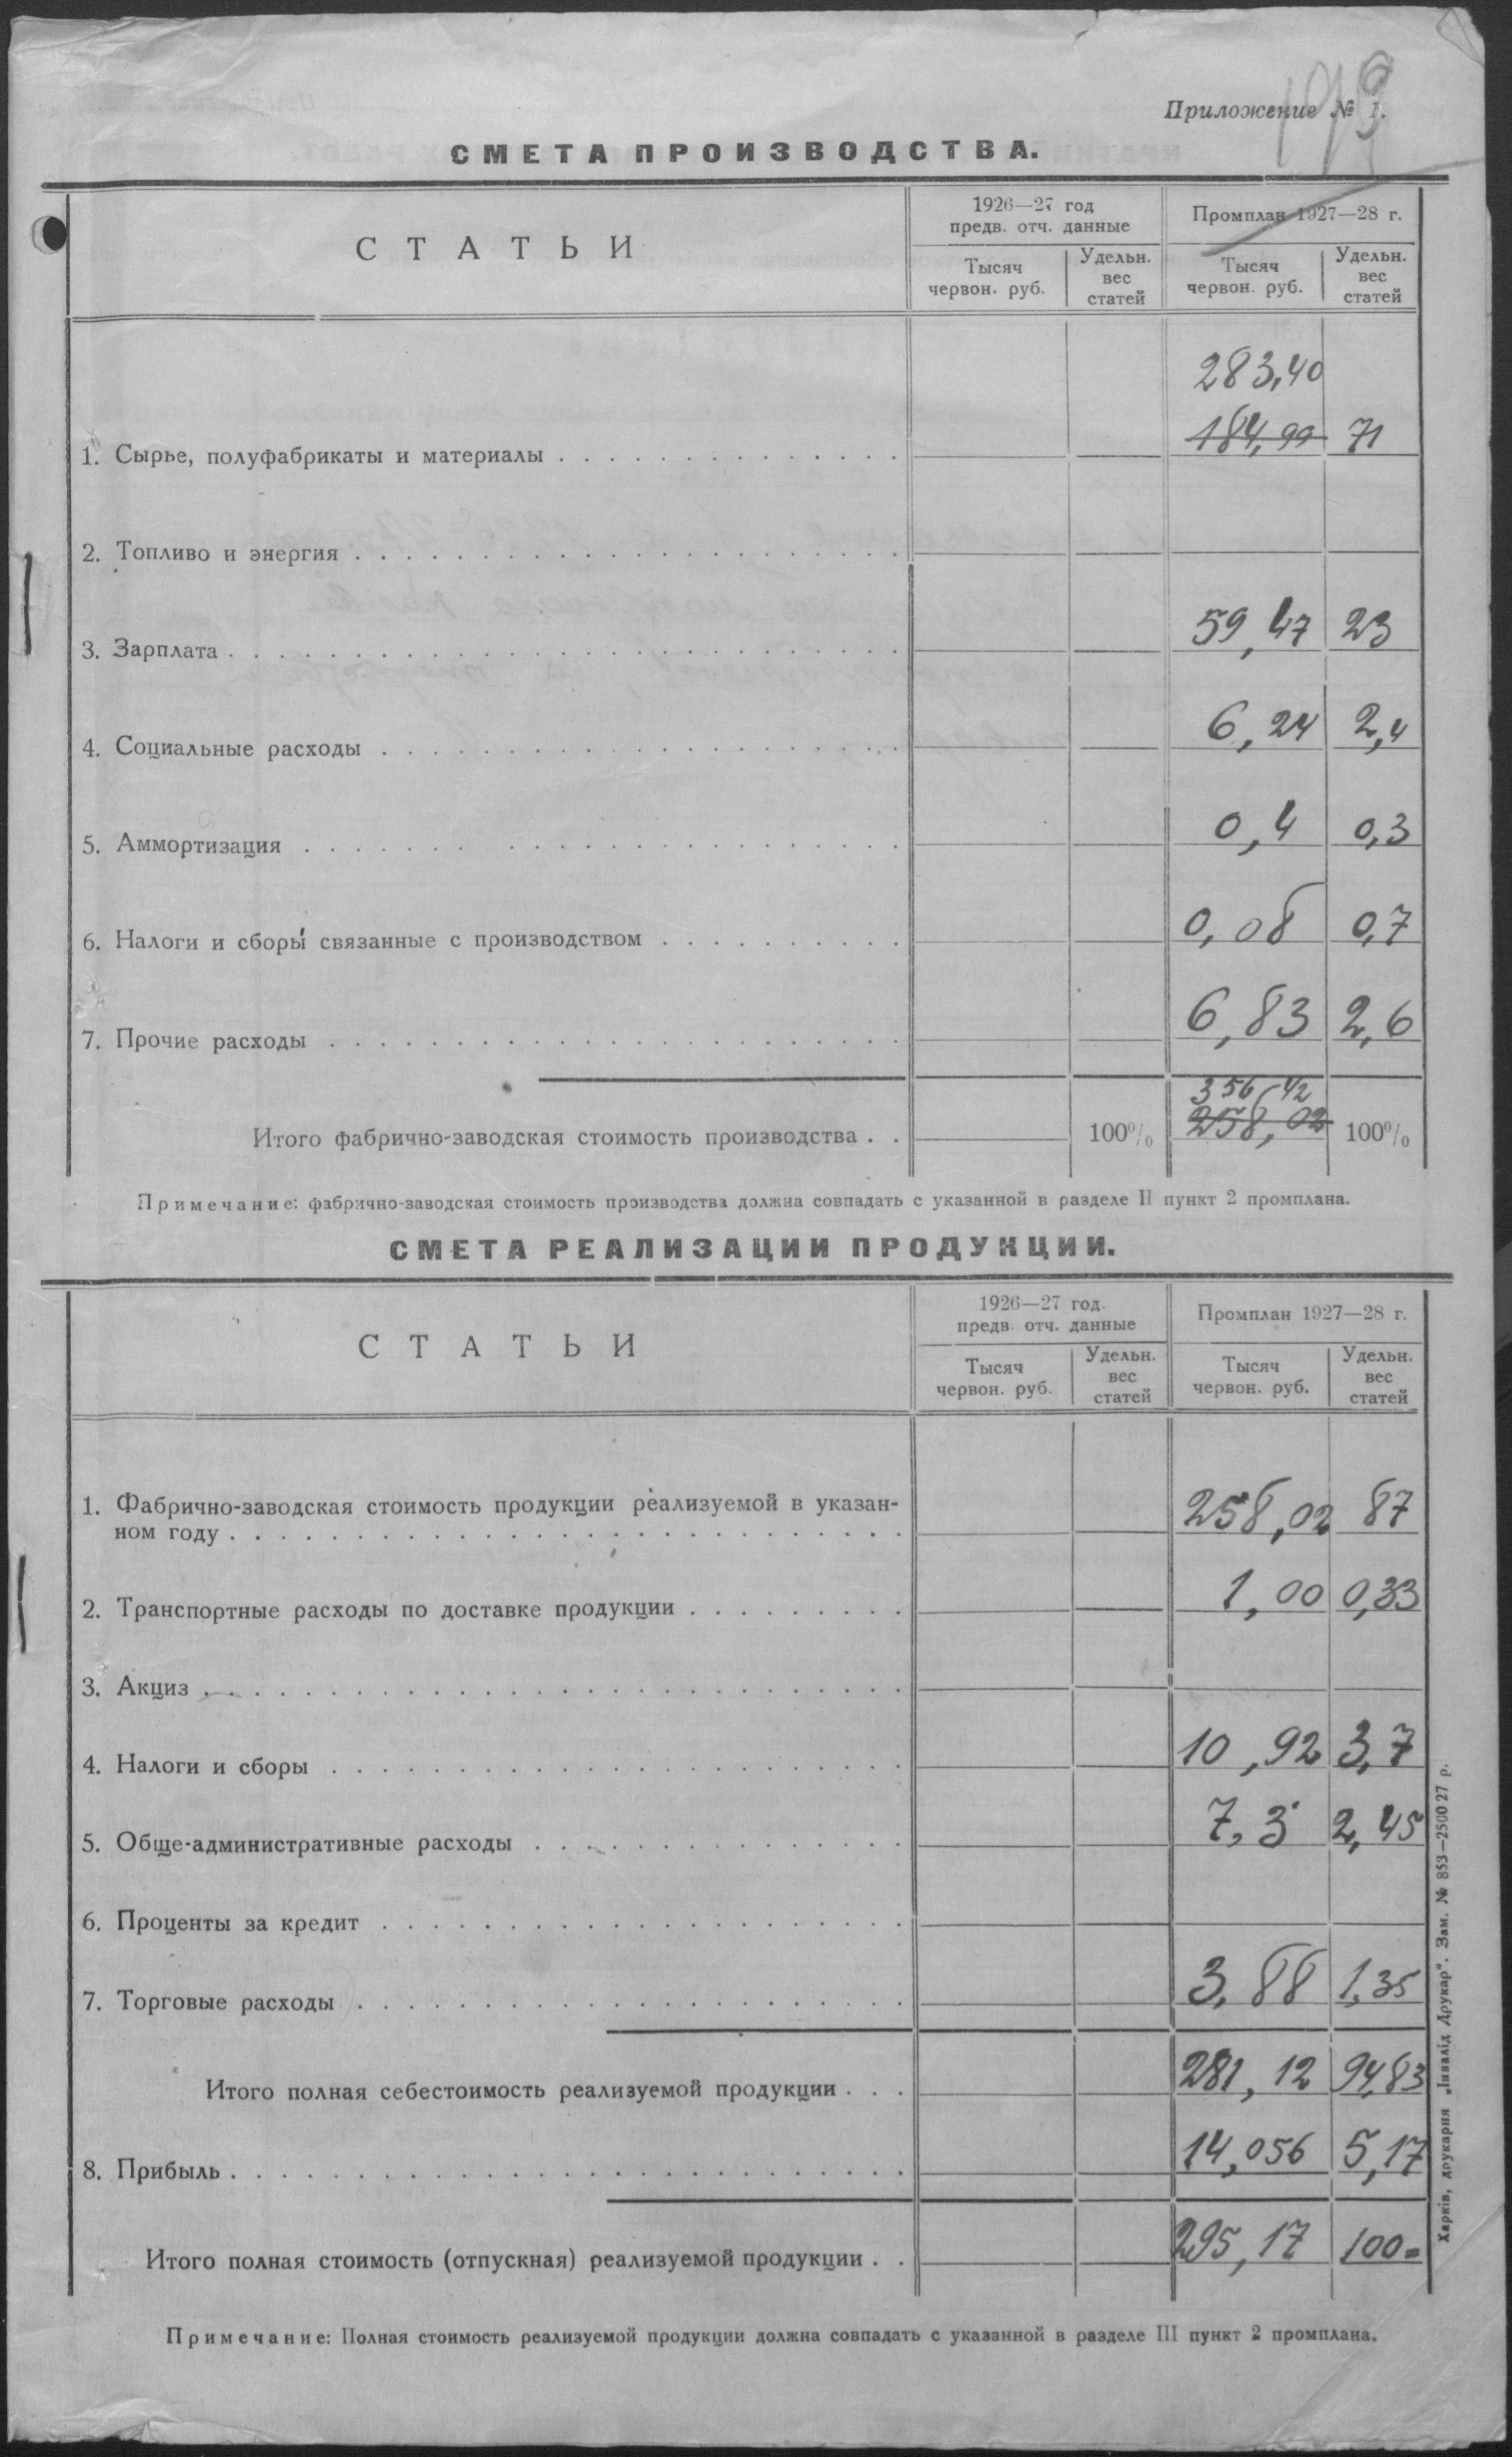 Приложение № 1.
СМЕТА ПРОИЗВОДСТВА.
СТАТЬИ
1926—27 год
предв. отч. данные
Промплан 1927—28 г.
Тысяч
червон. руб.
Удельн.
вес
статей
Тысяч
червон. руб.
Удельн.
вес
статей
283,40
1. Сырье, полуфабрикаты и материалы 184,99 71
2. Топливо и энергия
3. Зарплата 59,47 23
4. Социальные расходы 6,24 2,4
5. Аммортизация 0,4 0,3
6. Налоги и сборы связанные с производством 0,08 0,7
7. Прочие расходы 6,83 2,6
356,42
Итого фабрично-заводская стоимость производства 100% 258,02 100%
Примечание: фабрично-заводская стоимость производства должна совпадать с указанной в разделе II пункт 2 промплана.
СМЕТА РЕАЛИЗАЦИИ ПРОДУКЦИИ.
СТАТЬИ
1926—27 год.
предв. отч. данные
Промплан 1927—28 г.
Тысяч
червон. руб.
Удельн.
вес
статей
Тысяч
червон. руб.
Удельн.
вес
статей
1. Фабрично-заводская стоимость продукции реализуемой в указан-
ном году 258,02 87
2. Транспортные расходы по доставке продукции 1,00 0,33
3. Акциз
4. Налоги и сборы 10,92 3,7
5. Обще-административные расходы 7,3 2,45
6. Проценты за кредит
7. Торговые расходы 3,88 1,35
Итого полная себестоимость реализуемой продукции 281,12 94,83
8. Прибыль 14,056 5,17
Итого полная стоимость (отпускная) реализуемой продукции 295,17 100=
Примечание: Полная стоимость реализуемой продукции должна совпадать с указанной в разделе III пункт 2 промплана.
Харків, друкарня „Інвалід Друкар". Зам. № 853—2500 27 р.